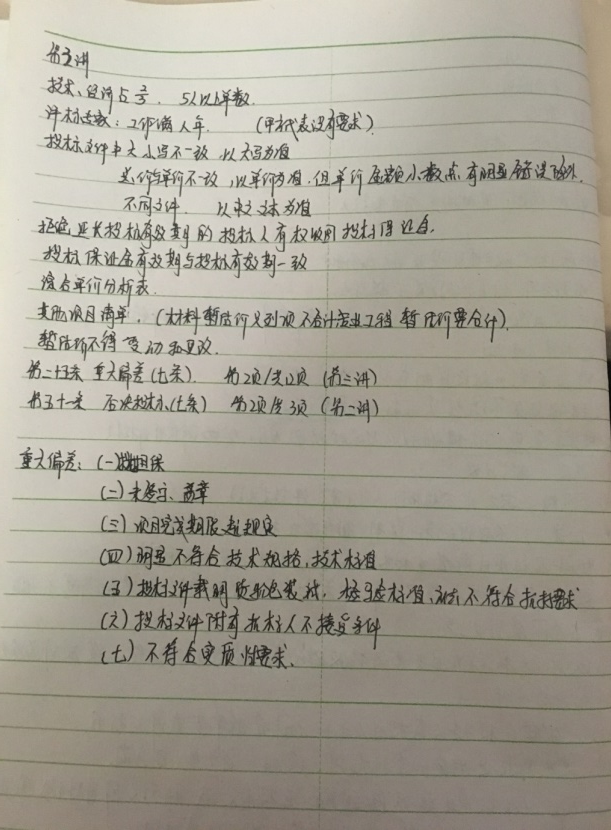 第三讲
技术、经济占 2/3 . 5人以上单数.
评标专家: 工作满八年. (甲方代表没有要求)
投标文件中大小写不一致 以大写为准
总价与单价不一致, 以单价为准, 但单价金额小数点 有明显错误除外.
不同文件. 以中文文本为准
拒绝延长投标有效期的投标人有权收回投标保证金.
投标保证金有效期与投标有效期一致
综合单价分析表.
其他项目清单. (材料暂估价 不合计 专业工程暂估价要合计).
暂估价不得变动和更改.
第二十五条 重大偏差(七条). 第2项/共12项 (第三讲)
第五十一条 否决投标(七条) 第2项/共3项 (第二讲)
重大偏差: (一) 担保
(二) 未签字、盖章
(三) 项目完成期限超规定
(四) 明显不符合技术规格, 技术标准
(五) 投标文件载明货物包装 , 检验标准, 不符合招标要求
(六) 投标文件附有招标人不接受条件
(七) 不符合实质性要求.